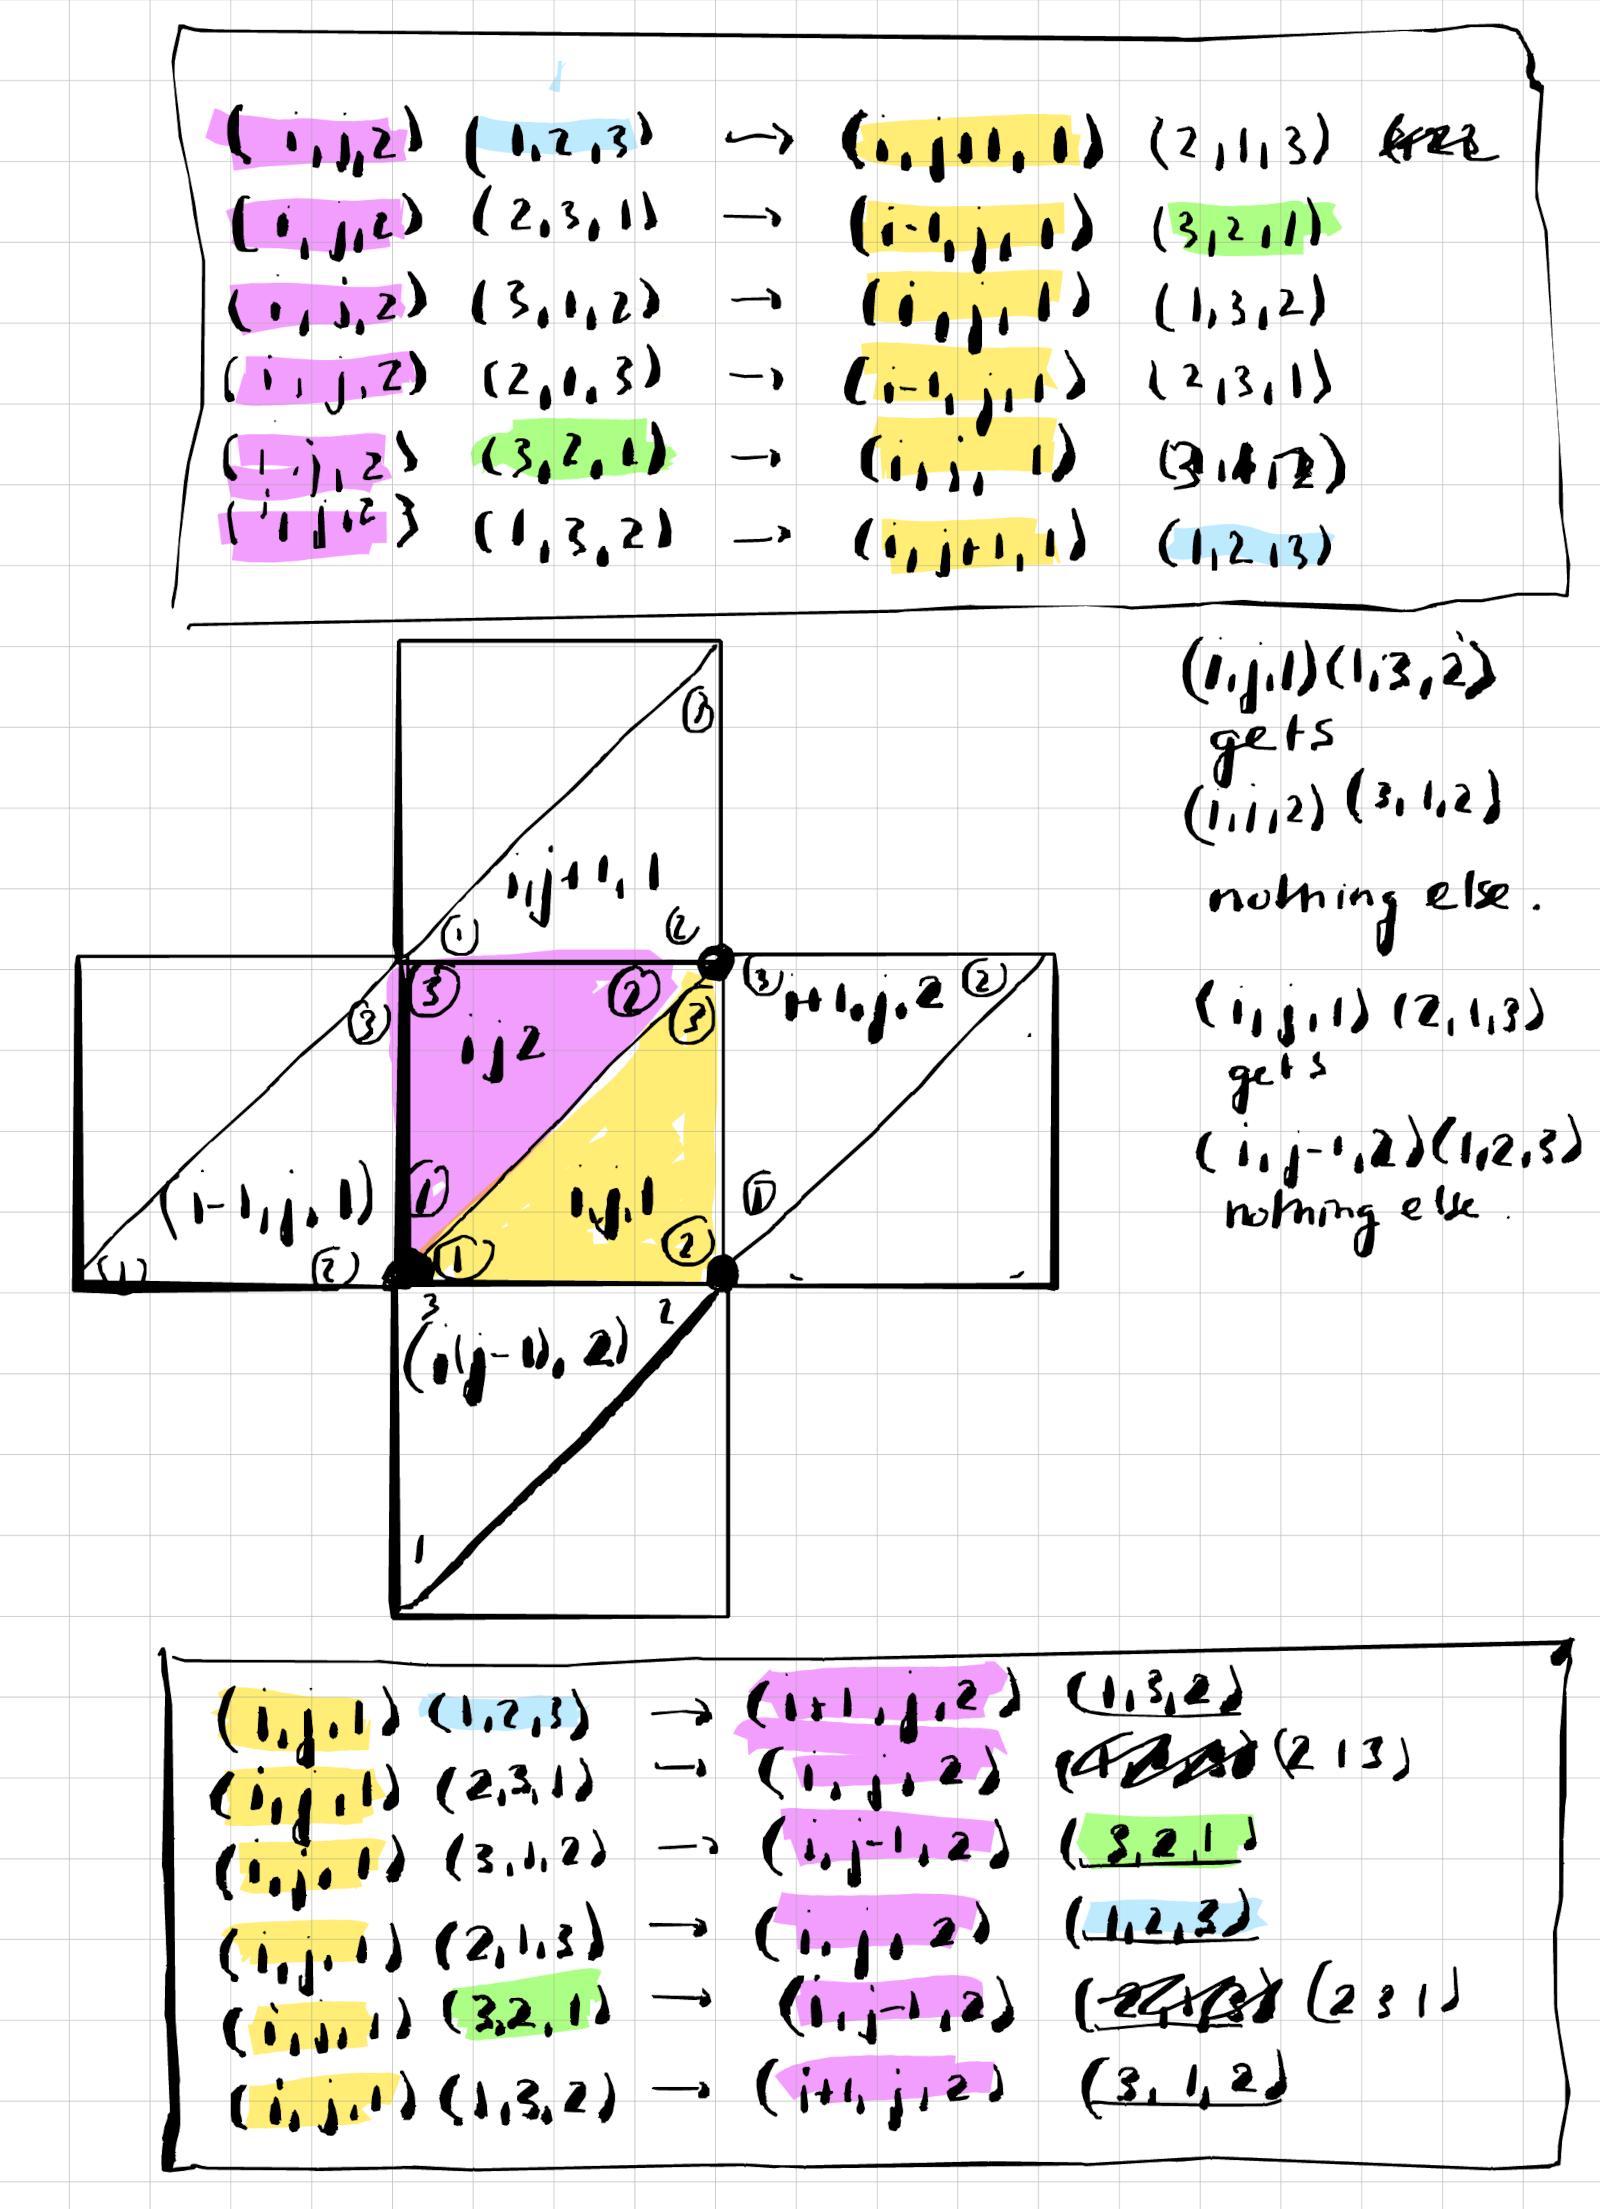 (i,j,2) (1,2,3) → (i,j+1,1) (2,1,3)
(i,j,2) (2,3,1) → (i-1,j,1) (3,2,1)
(i,j,2) (3,1,2) → (i,j,1) (1,3,2)
(i,j,2) (2,1,3) → (i-1,j,1) (2,3,1)
(i,j,2) (3,2,1) → (i,j,1) (3,1,2)
(i,j,2) (1,3,2) → (i,j+1,1) (1,2,3)
(i,j,1)(1,3,2)
gets
(i,j,2) (3,1,2)
nothing else.
(i,j,1) (2,1,3)
gets
(i,j-1,2)(1,2,3)
nothing else.
3
i,j+1,1
1 2
3 3 2 3 3 i+1,j,2 2
i,j2
(i-1,j,1) 1 i,j,1 1
1 2 1 2
3 2
(i,(j-1),2)
1
(i,j,1) (1,2,3) → (i+1,j,2) (1,3,2)
(i,j,1) (2,3,1) → (i,j,2) (2 1 3)
(i,j,1) (3,1,2) → (i,j-1,2) (3,2,1)
(i,j,1) (2,1,3) → (i,j,2) (1,2,3)
(i,j,1) (3,2,1) → (i,j-1,2) (2 3 1)
(i,j,1) (1,3,2) → (i+1,j,2) (3,1,2)